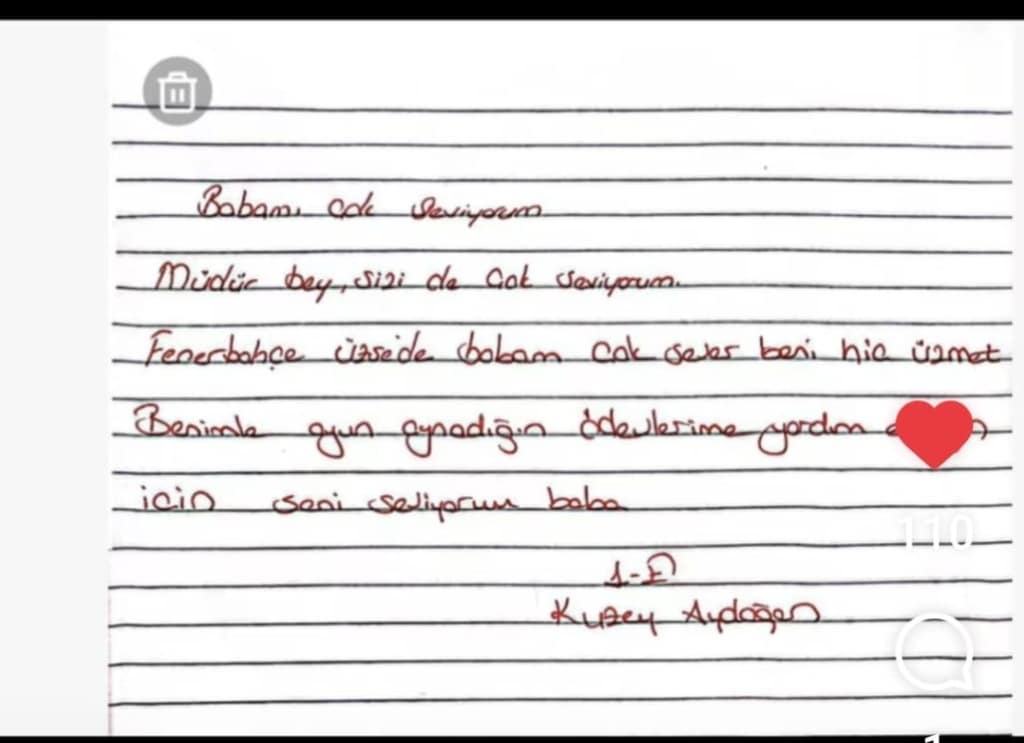 Babamı çok seviyorum
Müdür bey, sizi de çok seviyorum.
Fenerbahçe üzsede babam çok sever beni hiç üzmet
Benimle oyun oynadığın ödevlerime yardım
için seni seviyorum baba
1-E
Kuzey Aydoğan
110